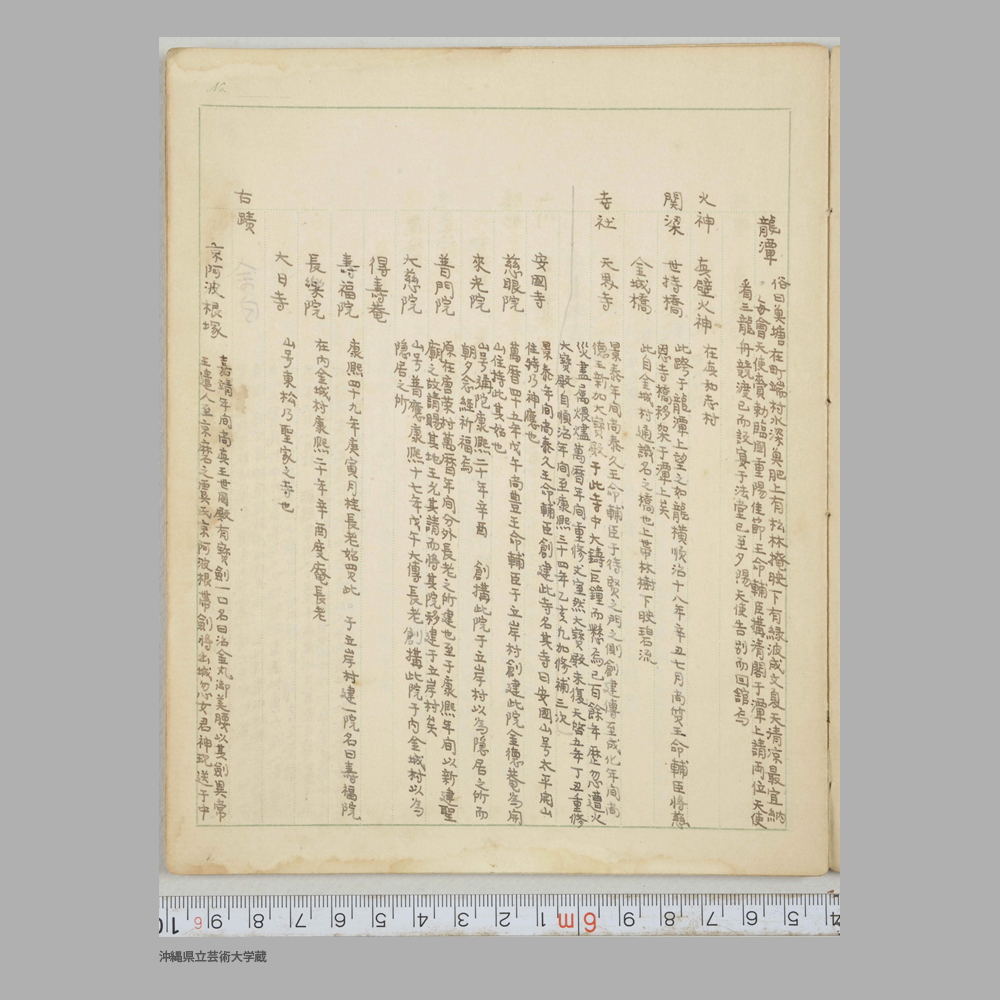 No.
龍潭
俗曰魚塘在町端村水深魚肥上有松林掩映下有緑波成文夏天清凉最宜納
毎會天使賫勅臨國重陽佳節王命輔臣構清閣于潭上請両位天使
看三龍舟競渡已而設宴于法堂已至夕陽天使告別而回舘焉
火神　真壁火神　在真和志村
関梁　世持橋　此跨于龍潭上望之如龍横順治十八年辛丑七月尚質王命輔臣将慈
恩寺橋移架于潭上矣
金城橋　此自金城村通識名之橋也上帯林樹下映碧流
寺社　天界寺　景泰年間尚泰久王命輔臣于待賢之門之側創建傳至成化年間尚
徳王新加大寶殿于此寺中大鑄巨鐘而懸焉已百餘年歴忽遭火
災盡属煨燼萬暦年間重修丈室然大寶殿未復天啓五年丁丑重修
大寶殿自順治年間至康熙三十四年乙亥九加修補三次
安國寺　景泰年間尚泰久王命輔臣創建此寺名其寺曰安國山号太平開山
住持乃神應也
慈眼院　萬暦四十五年戊午尚豊王命輔臣于立岸村創建此院金徳菴為開
山住持此其始也
來光院　山号彌陀康熙二十年辛酉　創搆此院于立岸村以為隠居之所而
朝夕念経祈福焉
普門院　原在唐榮村萬暦年間分外長老之所建也至于康熙年間以新建聖
廟之故請賜其地王允其請而将其院移建于立岸村矣
大慈院　山号普應康熙十七年戊午大傳長老創搆此院于内金城村以為
隠居之所
得壽菴
壽福院　康熙四十九年庚寅月桂長老始買此　于立岸村建一院名曰壽福院
長楽院　在内金城村康熙二十年辛酉度庵長老
大日寺　山号東松乃聖家之寺也
古蹟　京阿波根塚　嘉靖年間尚真王世国殿有寶劍一口名曰治金丸御差腰以其劍異常
王遣人至京磨之
京阿波根帯劍将出城忽女君神現送于中
沖縄県立芸術大学蔵